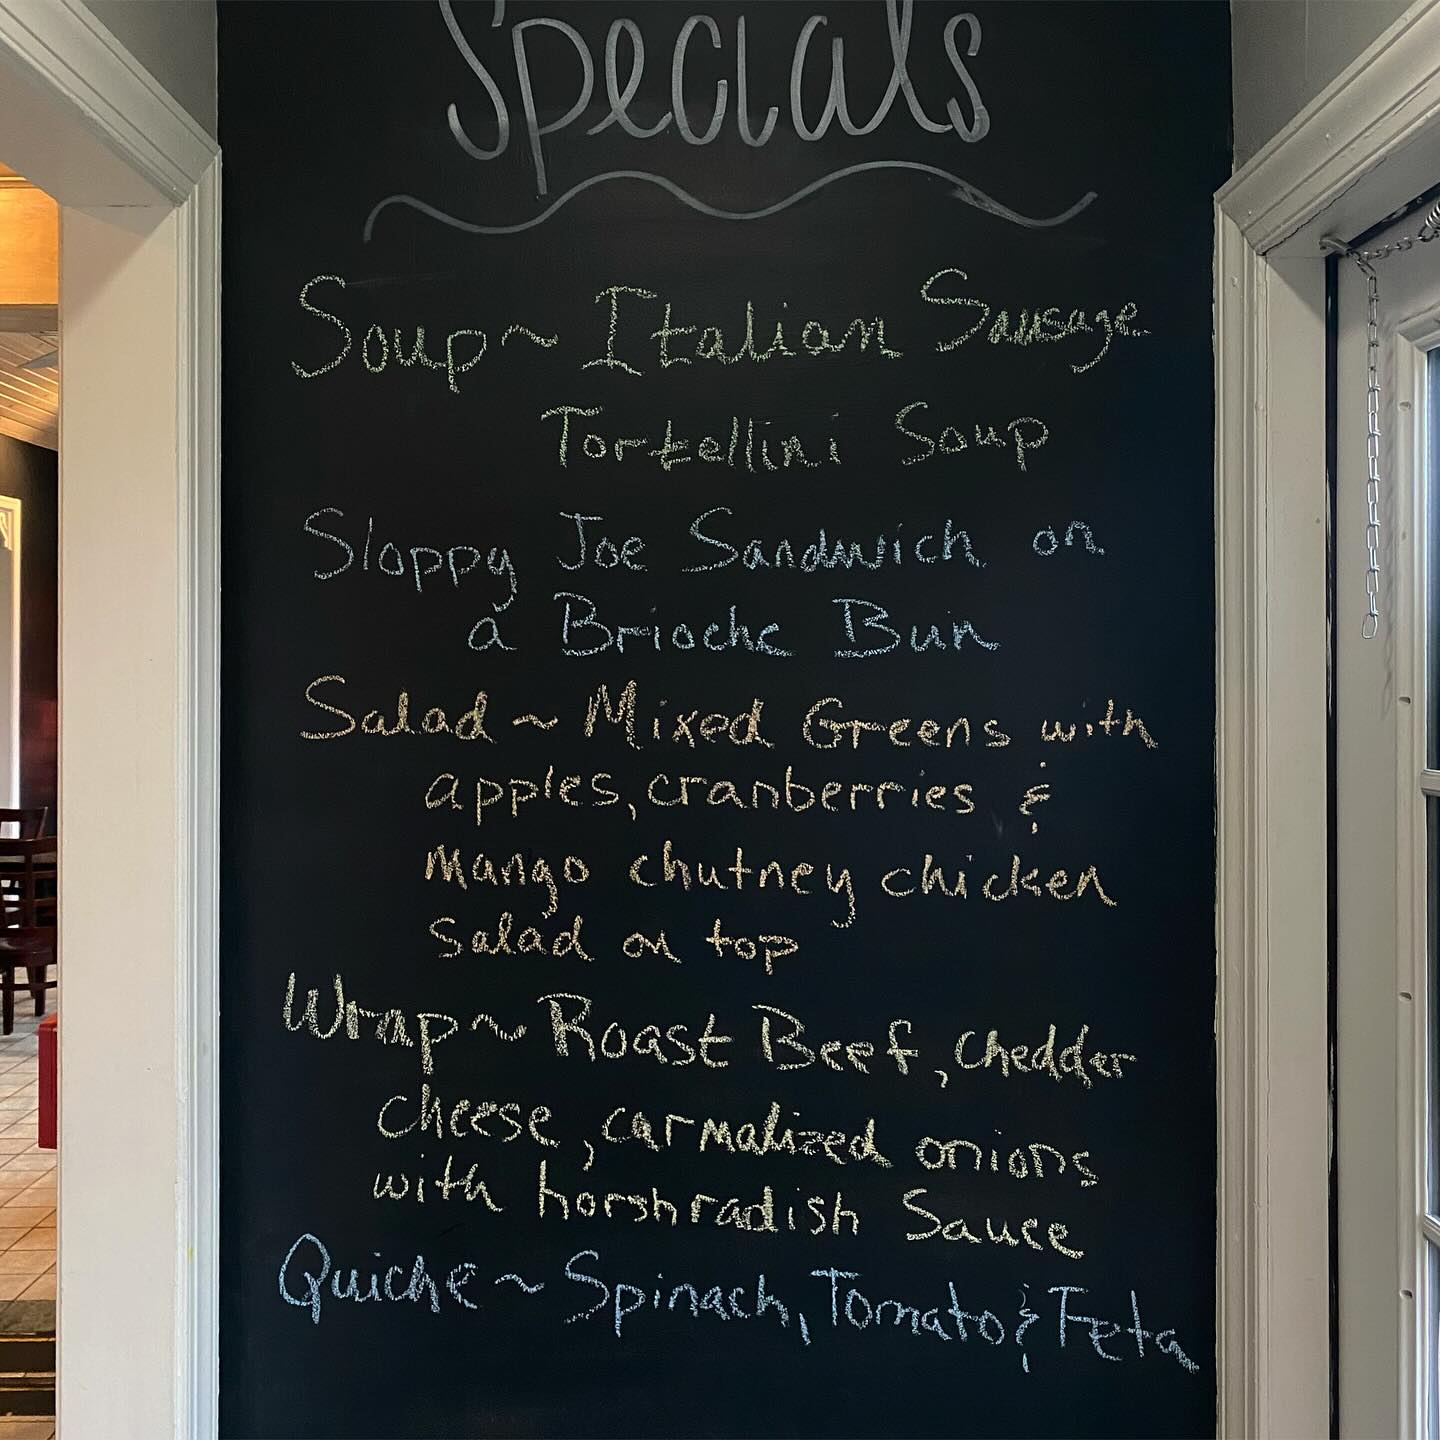 Specials
Soup ~ Italian Sausage
Tortellini Soup
Sloppy Joe Sandwich on
a Brioche Bun
Salad ~ Mixed Greens with
apples, cranberries &
mango chutney chicken
salad on top
Wrap ~ Roast Beef, chedder
cheese, carmalized onions
with horshradish Sauce
Quiche ~ Spinach, Tomato & Feta